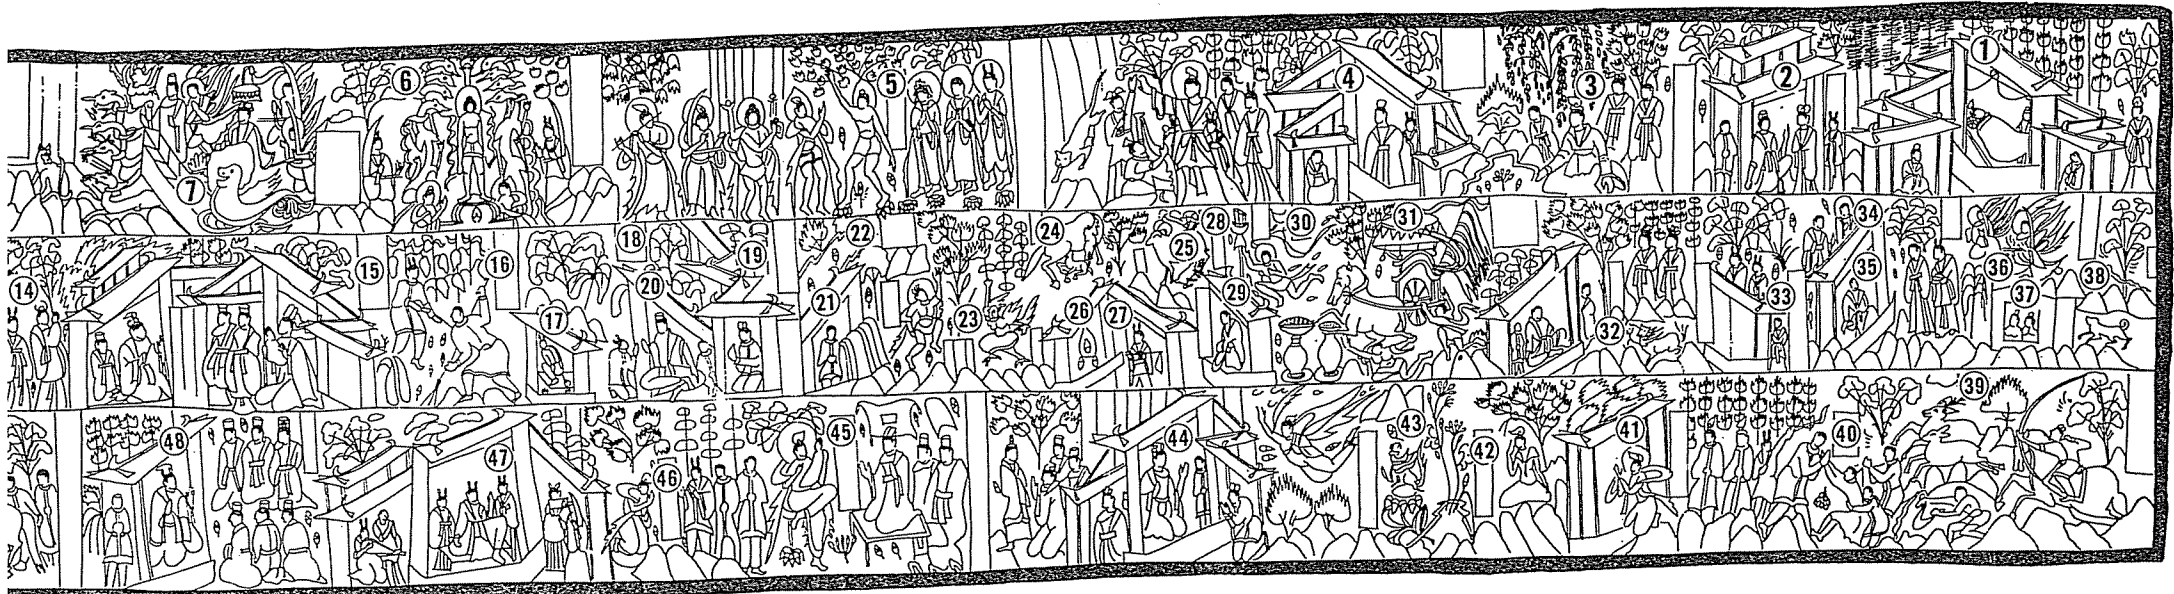 ⑥ ⑤ ④ ③ ② ①
⑦
⑭ ⑮ ⑯ ⑰ ⑱ ⑲ ⑳ ㉑ ㉒ ㉓ ㉔ ㉕ ㉖ ㉗ ㉘ ㉙ ㉚ ㉛ ㉜ ㉝ ㉞ ㉟ ㊱ ㊲ ㊳
㊽ ㊼ ㊻ ㊺ ㊹ ㊸ ㊷ ㊶ ㊵ ㊴